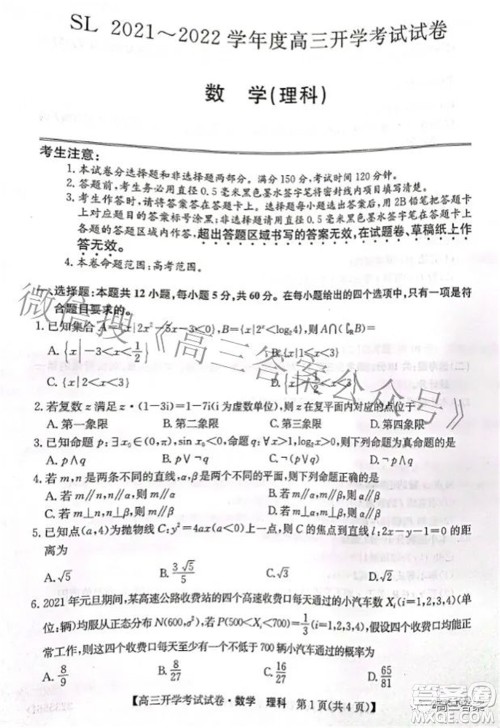 SL 2021～2022 学年度高三开学考试试卷
数 学(理科)
考生注意:
1. 本试卷分选择题和非选择题两部分。满分 150 分,考试时间 120 分钟。
2. 答题前,考生务必用直径 0.5 毫米黑色墨水签字笔将密封线内项目填写清楚。
3. 考生作答时,请将答案答在答题卡上。选择题每小题选出答案后,用 2B 铅笔把答题卡上
对应题目的答案标号涂黑;非选择题请用直径 0.5 毫米黑色墨水签字笔在答题卡上各题
的答题区域内作答,超出答题区域书写的答案无效,在试题卷、草稿纸上作
答无效。
4. 本卷命题范围:高考范围。
一、选择题:本题共 12 小题,每小题 5 分,共 60 分。在每小题给出的四个选项中,只有一项是符
合题目要求的。
1. 已知集合 A={x|2x²-5x-3<0}, B={x|2<log₂4},则 A∩(∁ᵣB)=
A. {x|-3<x<1/2} B. {x|-1/2<x<3}
C. {x|2<x<3} D. {x|1<x<3}
2. 若复数 z 满足 z·(1-3i)=1-7i(i 为虚数单位),则 z 在复平面内对应的点位于
A. 第一象限 B. 第二象限 C. 第三象限 D. 第四象限
A. p∧q B. p∨¬q C. p∧¬q
4. 若 m,n 是两条不同的直线,α,β 是两个不同的平面,则下列命题正确的是
A. 若 m∥n,n∥α,则 m∥α
5. 已知点(a,4)为抛物线 C:y²=4ax(a<0)上一点,则抛物线 C 的焦点到直线 l:2x-y-1=0 的距
离为
A. √5 B. 3√5/5 D. √5/5
6. 2021 年元旦期间,某高速公路收费站的四个高速收费口每天通过的小汽车数 Xᵢ(i=1,2,3,4)(单
位:辆)均服从正态分布 N(600,σ²),若 P(500<Xᵢ<700)=1/3(i=1,2,3,4),假设四个收费口均能
正常工作,则这四个收费口每天至少有一个不低于 700 辆小汽车通过的概率为
A. 8/9 B. 8/27 C. 16/27 D. 65/81
【高三开学考试试卷·数学 理科 第 1 页(共 4 页)】
微信搜《高三答案公众号》